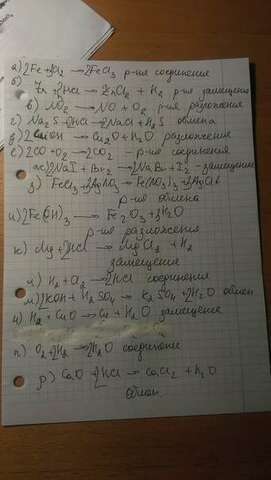 а) 2Fe + 3Cl2 → 2FeCl3 р-ие соединения
б)
Zn + 2HCl → ZnCl2 + H2 р-ие замещения
в) NO2 → NO + O2 р-ия разложения
г) Na2S + 2HCl → 2NaCl + H2S обмена
д) 2CuOH → Cu2O + H2O разложение
е) 2CO + O2 → 2CO2 - р-ие соединения
ж) 2NaI + Br2 → 2NaBr + I2 - замещение
з) FeCl3 + 3AgNO3 → Fe(NO3)3 + 3AgCl↓
р-ие обмена
и) 2Fe(OH)3 → Fe2O3 + 3H2O
р-ие разложения
к) Mg + 2HCl → MgCl2 + H2
замещение
л) H2 + Cl2 → 2HCl соединения
м) 2KOH + H2SO4 → K2SO4 + 2H2O обмен
н) H2 + CuO → Cu + H2O замещение
п) O2 + 2H2 → 2H2O соединение
р) CaO + 2HCl → CaCl2 + H2O
Обмен